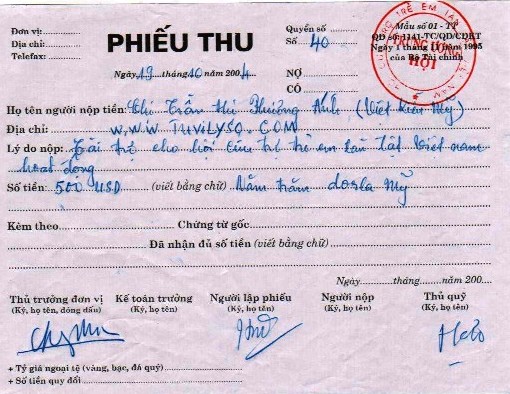 Đơn vị:
Địa chỉ:
Telefax:
PHIẾU THU
Quyển số
Số 40
Mẫu số 01 - TT
QĐ số: 1141-TC/QĐ/CĐKT
Ngày 1 tháng 11 năm 1995
của Bộ Tài chính
TRUNG ƯƠNG
HỘI
Ngày 19 tháng 10 năm 2004
NỢ
CÓ
Họ tên người nộp tiền: Chị Trần thị Phương Anh (Việt kiều Mỹ)
Địa chỉ: WWW TUVILYSO. COM
Lý do nộp: Tài trợ cho hội cứu trợ trẻ em tàn tật Việt nam
hoạt động
Số tiền: 500 USD (viết bằng chữ) Năm trăm dosla Mỹ
Kèm theo Chứng từ gốc:
Đã nhận đủ số tiền (viết bằng chữ)
Ngày tháng năm 200
Thủ trưởng đơn vị Kế toán trưởng Người lập phiếu Người nộp Thủ quỹ
(Ký, họ tên, đóng dấu) (Ký, họ tên) (Ký, họ tên) (Ký, họ tên) (Ký, họ tên)
+ Tỷ giá ngoại tệ (vàng, bạc, đá quý)
+ Số tiền quy đổi